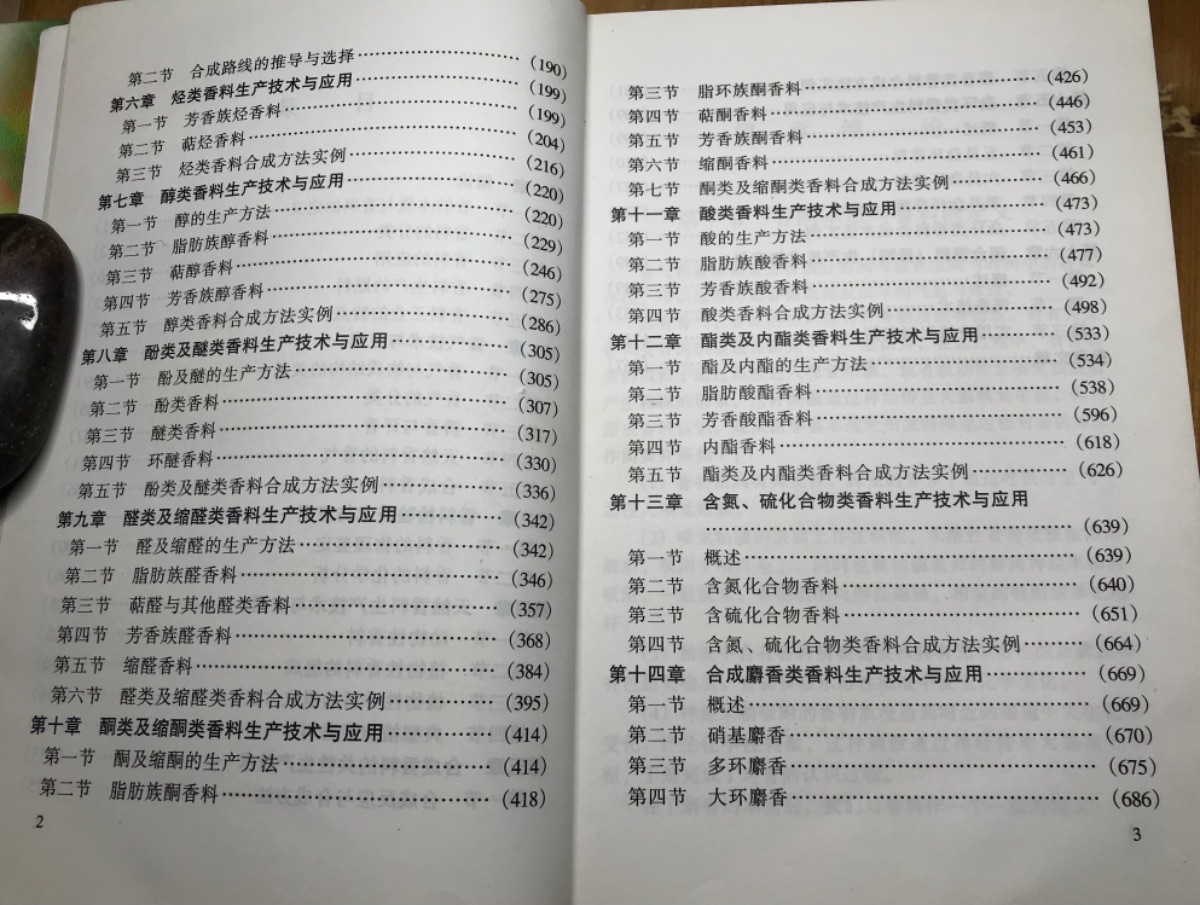 第二节 合成路线的推导与选择……………………(190)
第六章 烃类香料生产技术与应用……………………(199)
第一节 芳香族烃香料……………………(199)
第二节 萜烃香料……………………(204)
第三节 烃类香料合成方法实例……………………(216)
第七章 醇类香料生产技术与应用……………………(220)
第一节 醇的生产方法……………………(220)
第二节 脂肪族醇香料……………………(229)
第三节 萜醇香料……………………(246)
第四节 芳香族醇香料……………………(275)
第五节 醇类香料合成方法实例……………………(286)
第八章 酚类及醚类香料生产技术与应用……………………(305)
第一节 酚及醚的生产方法……………………(305)
第二节 酚类香料……………………(307)
第三节 醚类香料……………………(317)
第四节 环醚香料……………………(330)
第五节 酚类及醚类香料合成方法实例……………………(336)
第九章 醛类及缩醛类香料生产技术与应用……………………(342)
第一节 醛及缩醛的生产方法……………………(342)
第二节 脂肪族醛香料……………………(346)
第三节 萜醛与其他醛类香料……………………(357)
第四节 芳香族醛香料……………………(368)
第五节 缩醛香料……………………(384)
第六节 醛类及缩醛类香料合成方法实例……………………(395)
第十章 酮类及缩酮类香料生产技术与应用……………………(414)
第一节 酮及缩酮的生产方法……………………(414)
第二节 脂肪族酮香料……………………(418)
2
第三节 脂环族酮香料……………………(426)
第四节 萜酮香料……………………(446)
第五节 芳香族酮香料……………………(453)
第六节 缩酮香料……………………(461)
第七节 酮类及缩酮类香料合成方法实例……………………(466)
第十一章 酸类香料生产技术与应用……………………(473)
第一节 酸的生产方法……………………(473)
第二节 脂肪族酸香料……………………(477)
第三节 芳香族酸香料……………………(492)
第四节 酸类香料合成方法实例……………………(498)
第十二章 酯类及内酯类香料生产技术与应用……………………(533)
第一节 酯及内酯的生产方法……………………(534)
第二节 脂肪酸酯香料……………………(538)
第三节 芳香酸酯香料……………………(596)
第四节 内酯香料……………………(618)
第五节 酯类及内酯类香料合成方法实例……………………(626)
第十三章 含氮、硫化合物类香料生产技术与应用
……………………(639)
第一节 概述……………………(639)
第二节 含氮化合物香料……………………(640)
第三节 含硫化合物香料……………………(651)
第四节 含氮、硫化合物类香料合成方法实例…………(664)
第十四章 合成麝香类香料生产技术与应用……………(669)
第一节 概述……………………(669)
第二节 硝基麝香……………………(670)
第三节 多环麝香……………………(675)
第四节 大环麝香……………………(686)
3